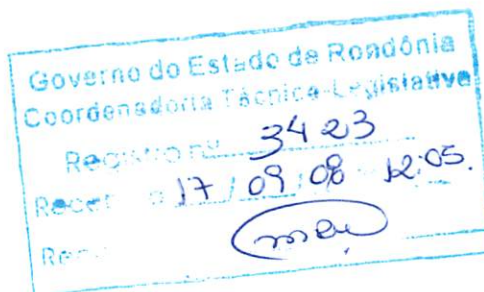 Governo do Estado de Rondônia
Coordenadoria Técnica-Legislativa
Registro nº 3423
17 / 09 / 08 12:05.